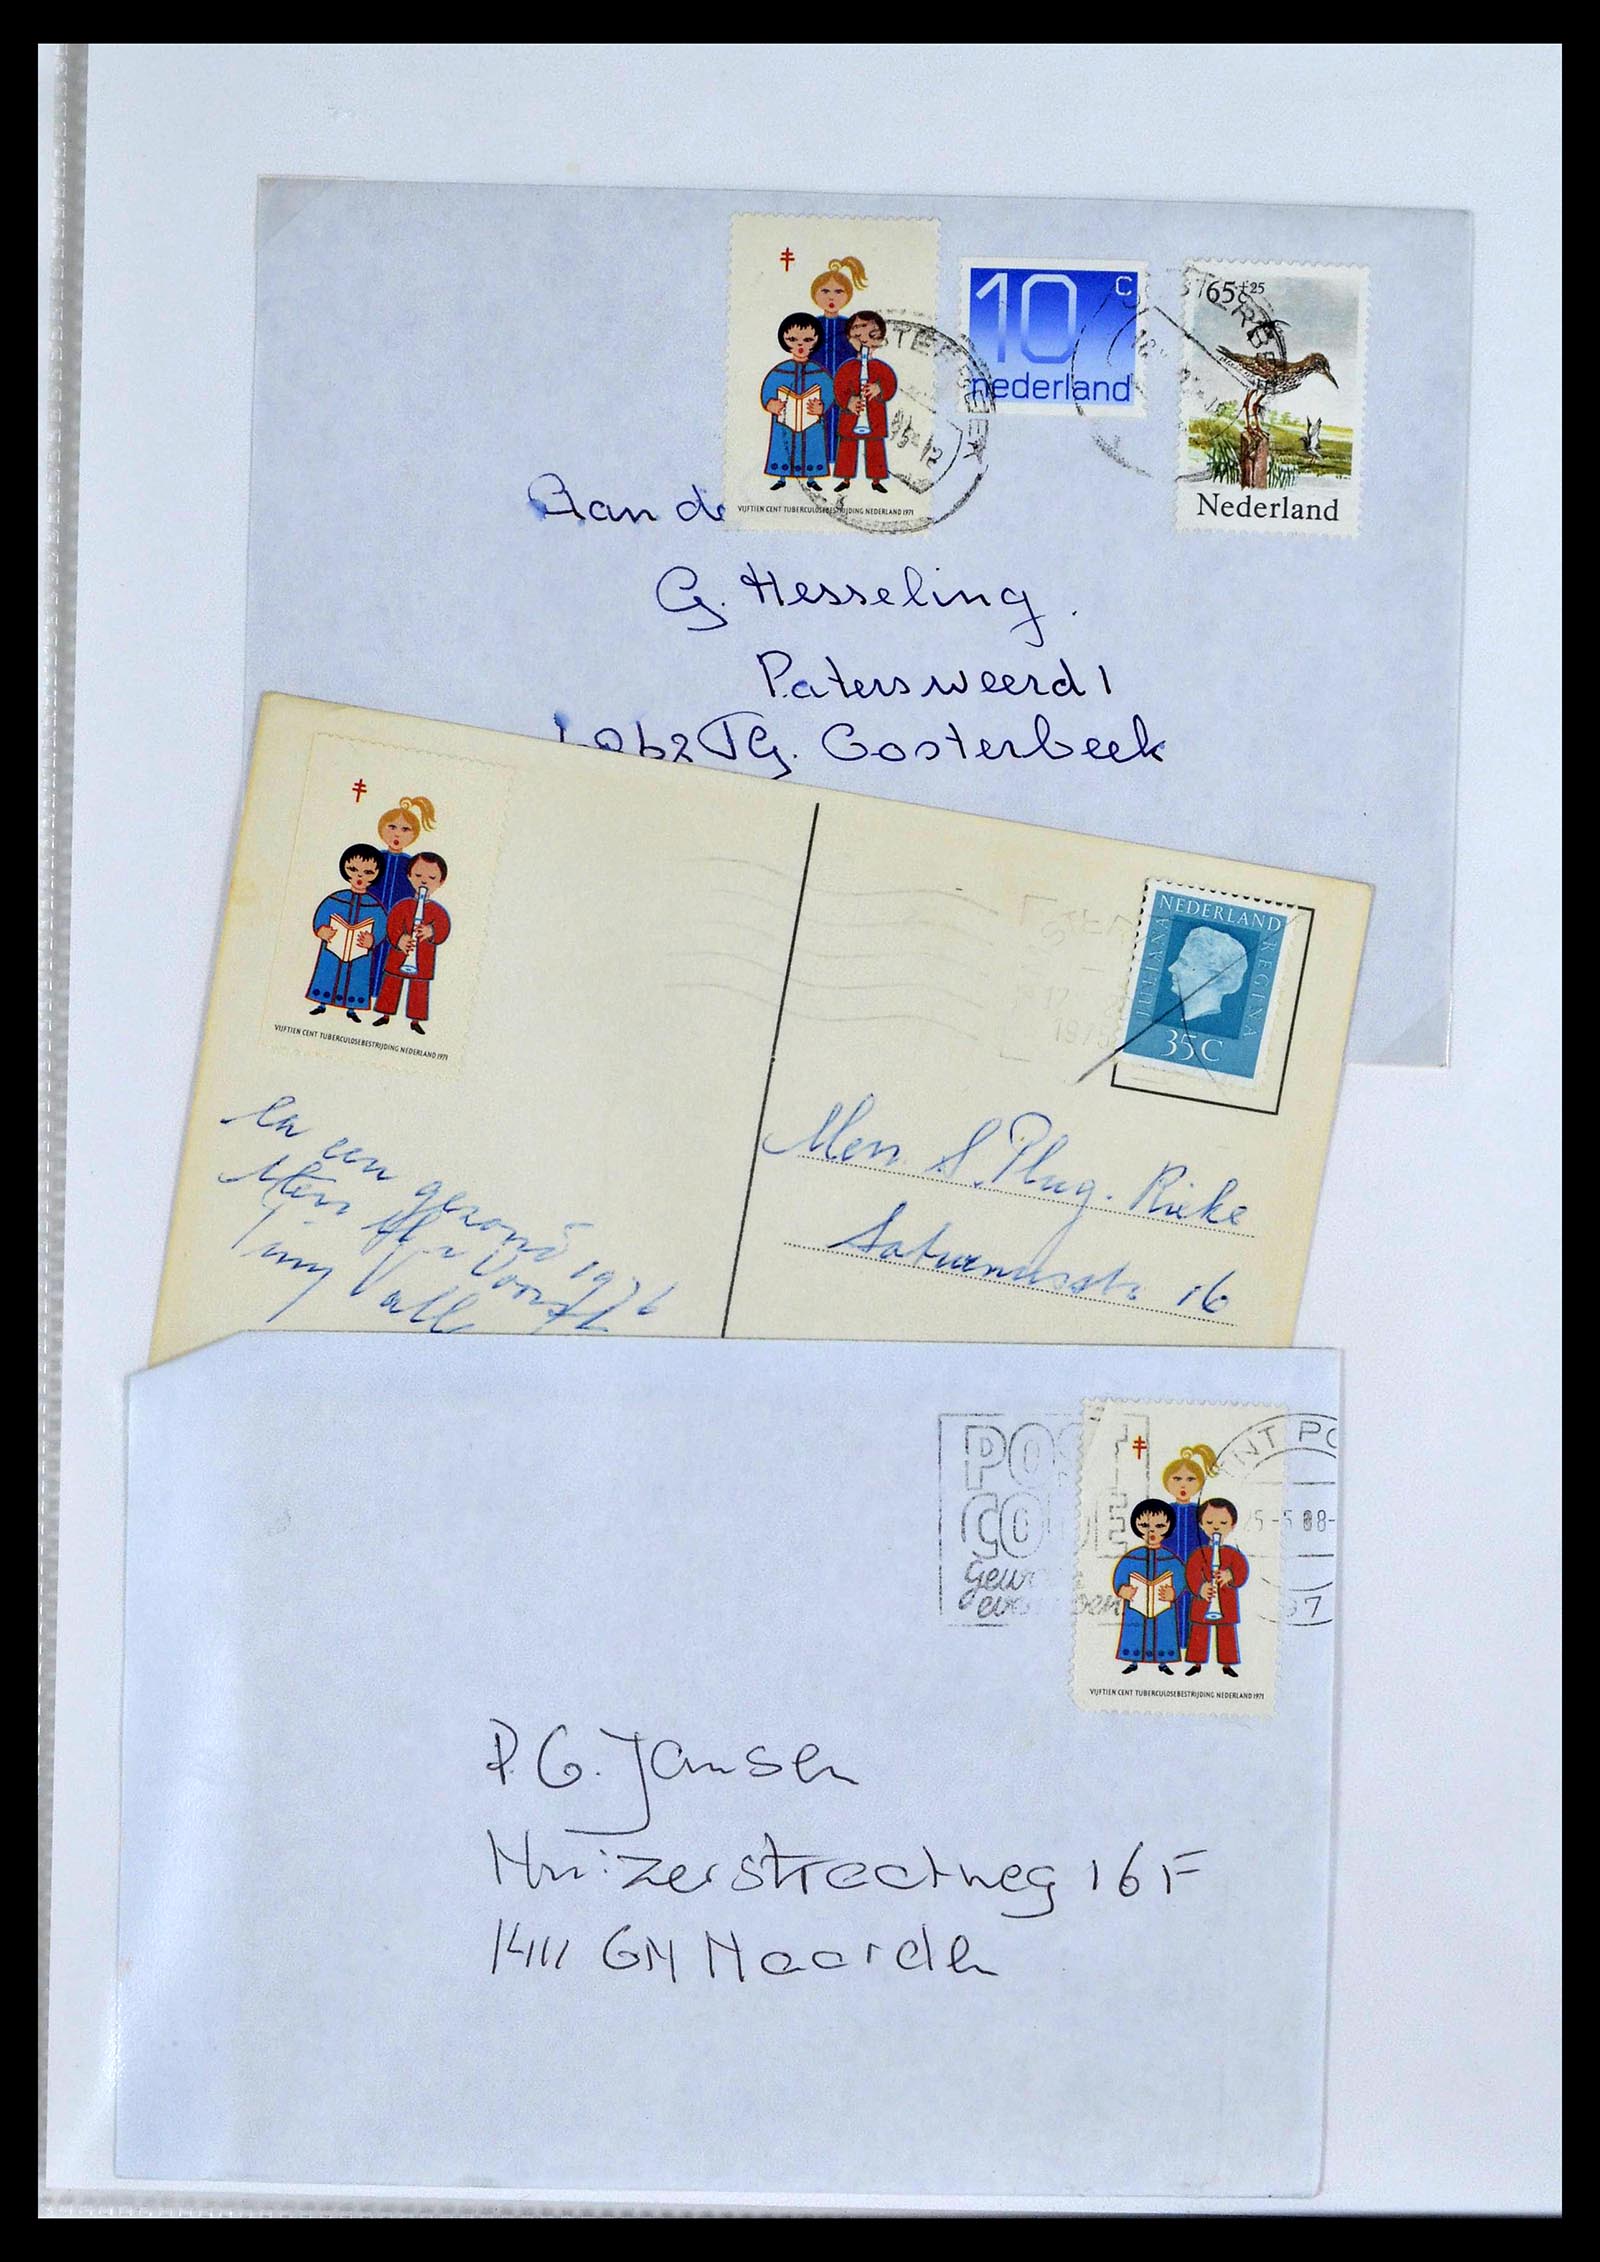 VIJFTIEN CENT TUBERCULOSEBESTRIJDING NEDERLAND 1971
10 C
nederland
65+25 c
Nederland
OOSTERBEEK
Aan de
G. Hesseling.
Patersweerd 1
TG. Oosterbeek
VIJFTIEN CENT TUBERCULOSEBESTRIJDING NEDERLAND 1971
1975
NEDERLAND
JULIANA REGINA
35 C
en een gezond 1976
Mevr
Mevr. S. Plug. Rieke
Saturnusstr. 16
POST
CODE
25-5 88-
VIJFTIEN CENT TUBERCULOSEBESTRIJDING NEDERLAND 1971
P.G. Jansen
Huizerstraatweg 16F
1411 GM Naarden